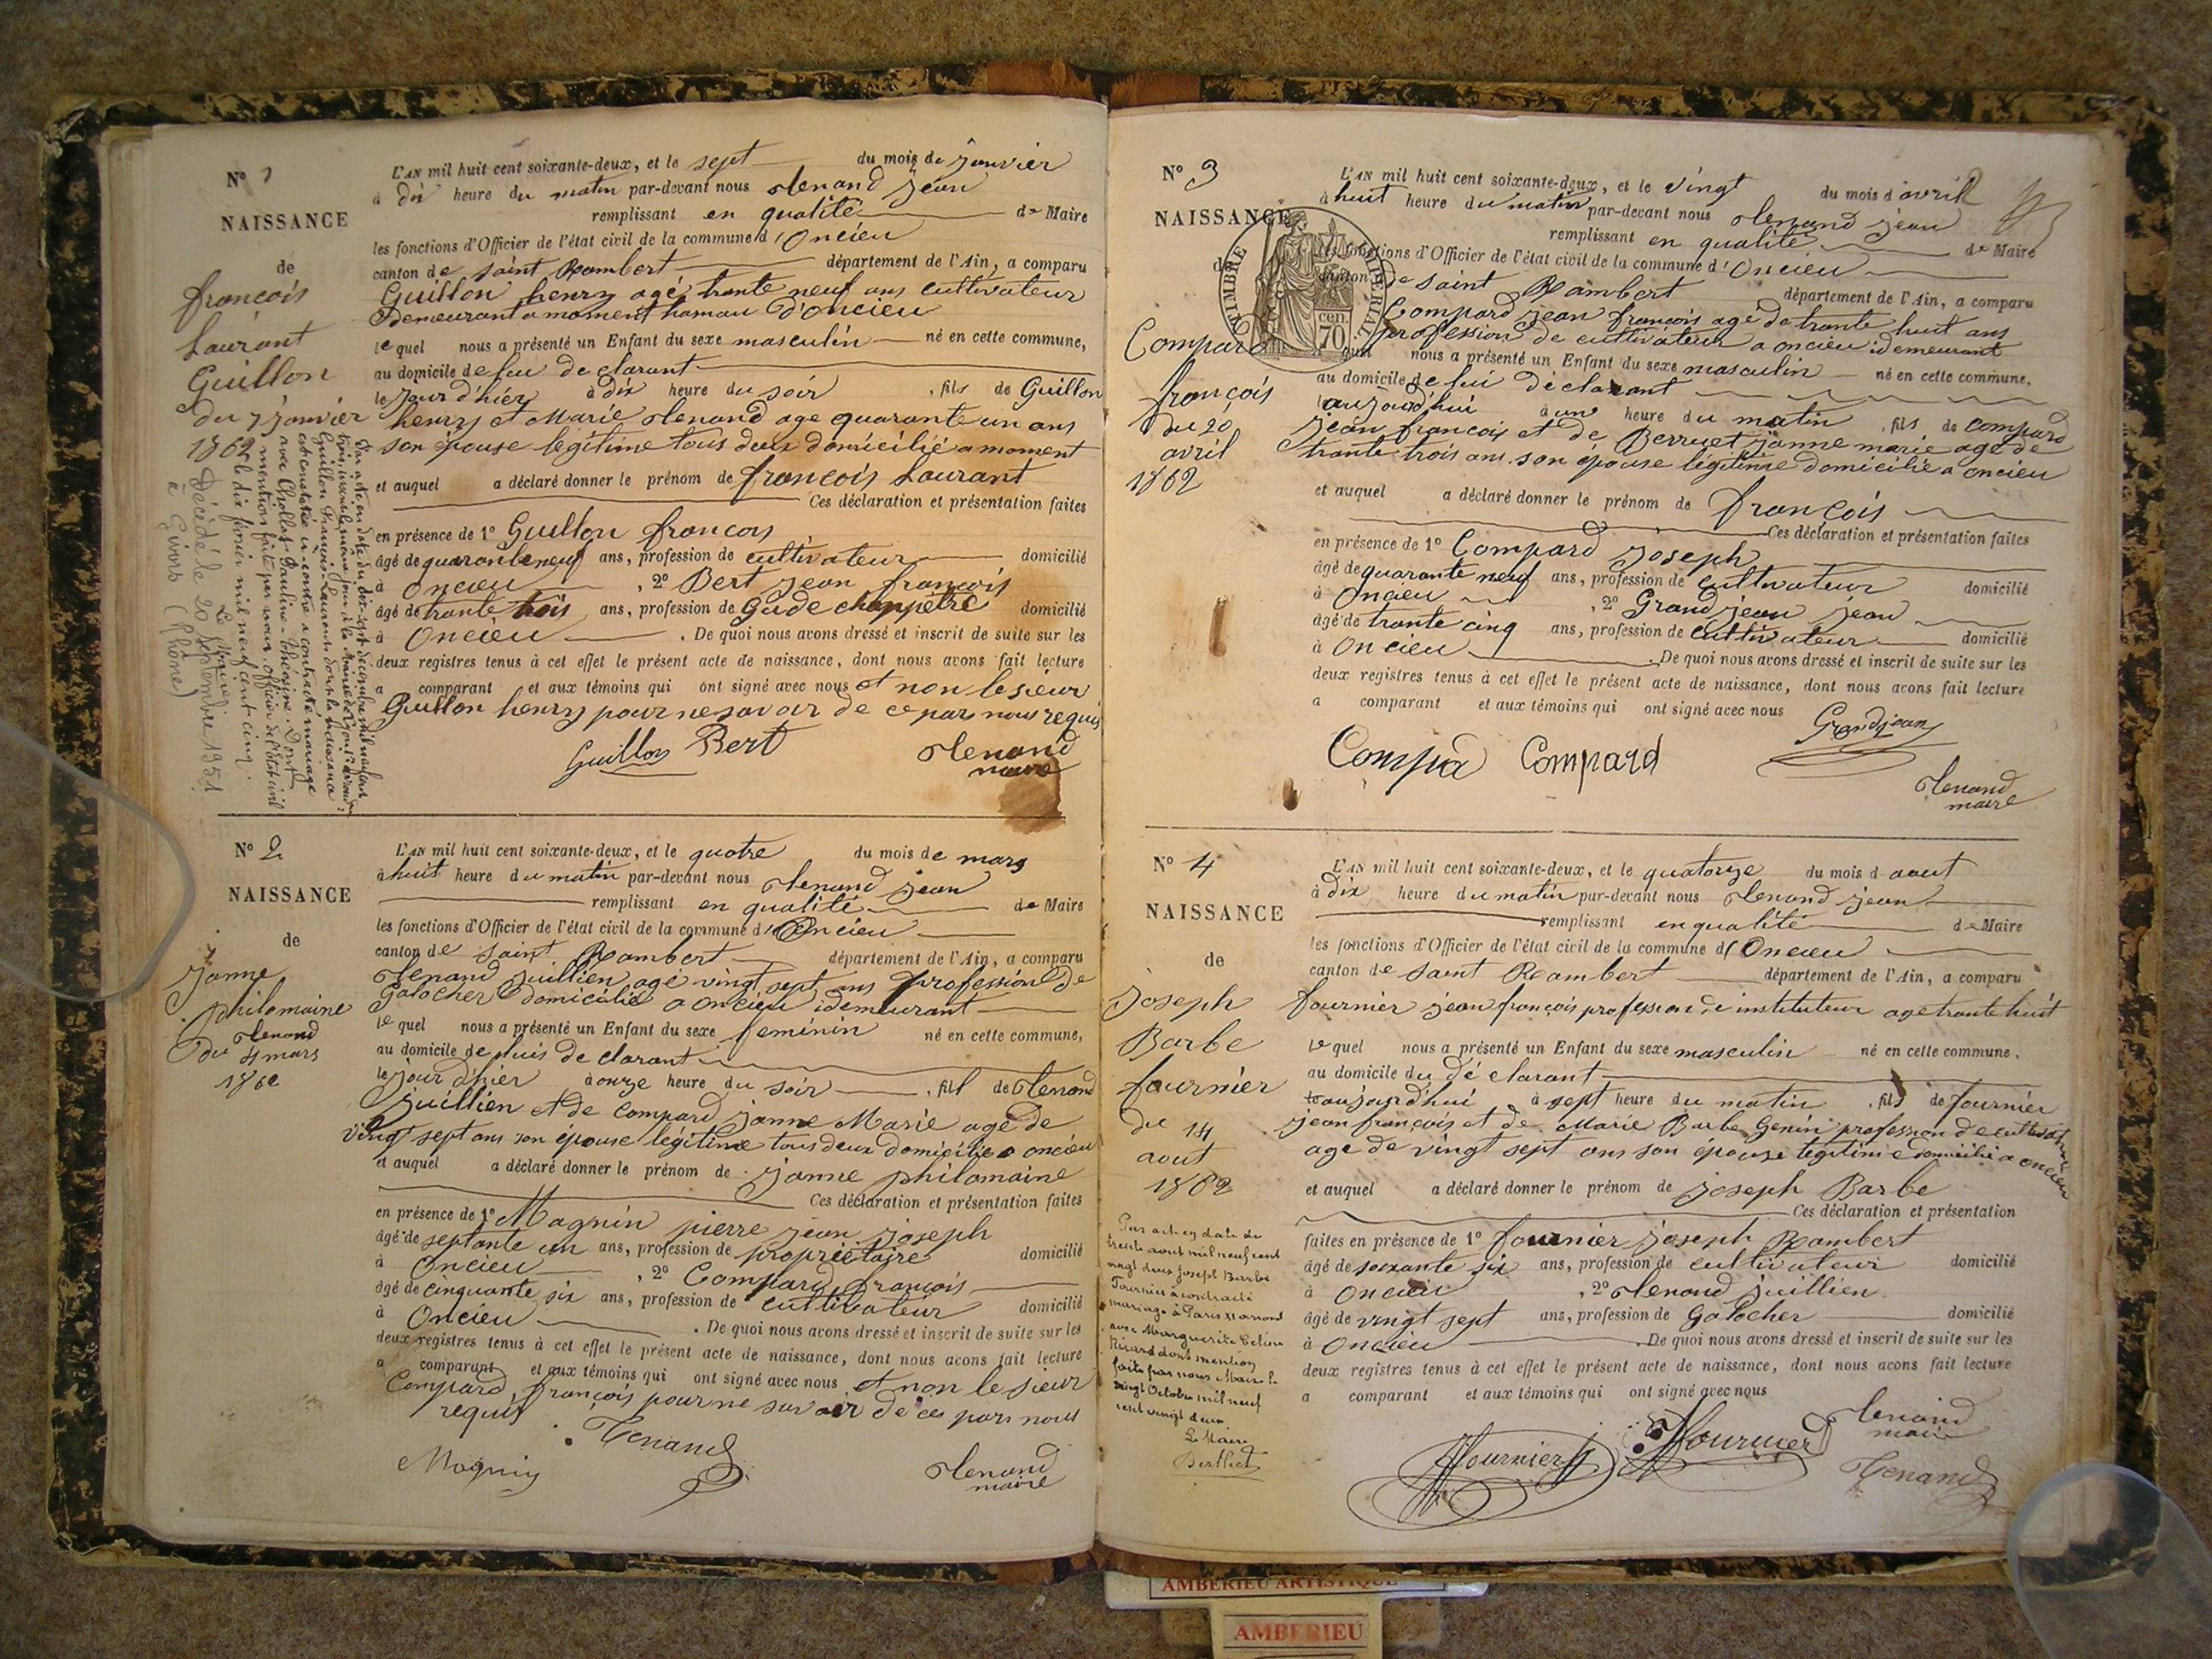 N° 1
NAISSANCE
de
francois
Laurant
Guillon
du 7 janvier
1862
Décédé le 20 septembre 1951
à Givors (Rhône)
Par acte en date du dix-sept décembre mil neuf cent
Guillon François Laurent dont la naissance
est constatée ci-contre a contracté mariage
avec Chollat Pauline Théosine. Dont
mention faite par nous officier de l'état civil
le dix février mil neuf cent cinq.
Le Maire
L'AN mil huit cent soixante-deux, et le sept du mois de janvier
à dix heure du matin par-devant nous Tenand jean
remplissant en qualité de Maire
les fonctions d'Officier de l'état civil de la commune d'Oncieu
canton de saint Rambert département de l'Ain, a comparu
Guillon henry agé trante neuf ans cultivateur
Demeurant a moment hamau D'oncieu
lequel nous a présenté un Enfant du sexe masculin né en cette commune,
au domicile de lui de clarant
le jour d'hier à dix heure du soir , fils de Guillon
henry et Marie Tenand age quarante un ans
son epouse legitime tous deux domicilié a moment
et auquel a déclaré donner le prénom de francois Laurant
Ces déclaration et présentation faites
en présence de 1° Guillon francois
âgé de quarante neuf ans, profession de cultivateur domicilié
à oncieu , 2° Bert jean francois
âgé de trante trois ans, profession de Gade champêtre domicilié
à Oncieu . De quoi nous avons dressé et inscrit de suite sur les
deux registres tenus à cet effet le présent acte de naissance, dont nous avons fait lecture
a comparant et aux témoins qui ont signé avec nous et non le sieur
Guillon henry pour ne savoir de ce pars nous requis
Guillon Bert Tenand
maire
N° 2
NAISSANCE
de
janne
philomaine
Tenand
du 4 mars
1862
L'AN mil huit cent soixante-deux, et le quatre du mois de mars
à huit heure du matin par-devant nous Tenand jean
remplissant en qualité de Maire
les fonctions d'Officier de l'état civil de la commune d'Oncieu
canton de saint Rambert département de l'Ain, a comparu
Tenand juillien agé vingt sept ans profession De
Galocher domicilié a oncieu idemeurant
lequel nous a présenté un Enfant du sexe feminin né en cette commune,
au domicile de luis de clarant
le jour d'hier à onze heure du soir , fil de Tenand
juillien et de Compard janne Marie age de
vingt sept ans son épouse légitime tous deux domicilie a oncieu
et auquel a déclaré donner le prénom de janne philomaine
Ces déclaration et présentation faites
en présence de 1° Magnin pierre jean joseph
âgé de septante un ans, profession de propriétaire domicilié
à Oncieu , 2° Compard francois
âgé de cinquante six ans, profession de cultivateur domicilié
à Oncieu . De quoi nous avons dressé et inscrit de suite sur les
deux registres tenus à cet effet le présent acte de naissance, dont nous avons fait lecture
a comparant et aux témoins qui ont signé avec nous et non le sieur
Compard françois pour ne savoir de ces pars nous
requis
Tenand
Magnin Tenand
maire
N° 3
NAISSANCE
de
Compard
françois
du 20
avril
1862
TIMBRE IMPERIAL
70 cen.
L'AN mil huit cent soixante-deux, et le vingt du mois d'avril
à huit heure du matin par-devant nous Tenand jean
remplissant en qualité de Maire
les fonctions d'Officier de l'état civil de la commune d'Oncieu
canton de saint Rambert département de l'Ain, a comparu
Compard jean françois agé de trante huit ans
profession de cultivateur a oncieu idemeurant
quel nous a présenté un Enfant du sexe masculin né en cette commune.
au domicile de lui déclarant
aujourd'hui à une heure du matin , fils de compard
jean françois et de Berruet janne marie age de
trante trois ans son epouse légitime domicilie a oncieu
et auquel a déclaré donner le prénom de françois
Ces déclaration et présentation faites
en présence de 1° Compard joseph
âgé de quarante neuf ans, profession de cultivateur domicilié
à Oncieu , 2° Grand jean jean
âgé de trante cinq ans, profession de cultivateur domicilié
à Oncieu . De quoi nous avons dressé et inscrit de suite sur les
deux registres tenus à cet effet le présent acte de naissance, dont nous avons fait lecture
a comparant et aux témoins qui ont signé avec nous
Grandjean
Compa Compard
Tenand
maire
N° 4
NAISSANCE
de
joseph
Barbe
fournier
du 14
aout
1862
Par acte en date du
trente aout mil neuf cent
vingt deux Joseph Barbe
Fournier a contracté
mariage à Paris XI arrond
avec Marguerite Celine
Ricard dont mention
faite par nous Maire le
vingt Octobre mil neuf
cent vingt deux
Le Maire
Berthet
L'AN mil huit cent soixante-deux, et le quatorze du mois d aout
à dix heure du matin par-devant nous Tenand jean
remplissant en qualité de Maire
les fonctions d'Officier de l'état civil de la commune d'Oncieu
canton de saint Rambert département de l'Ain, a comparu
fournier jean françois profession de instituteur age trante huit
lequel nous a présenté un Enfant du sexe masculin né en cette commune.
au domicile du dé clarant
aujourd'hui à sept heure du matin , fils de fournier
jean françois et de Marie Barbe Genin profession de cultivatrice
age de vingt sept ans son épouse legitime domicilié a oncieu
et auquel a déclaré donner le prénom de joseph Barbe
Ces déclaration et présentation
faites en présence de 1° fournier joseph Rambert
âgé de soixante six ans, profession de cultivateur domicilié
à Oncieu , 2° Tenand juillien
âgé de vingt sept ans, profession de Galocher domicilié
à Oncieu . De quoi nous avons dressé et inscrit de suite sur les
deux registres tenus à cet effet le présent acte de naissance, dont nous avons fait lecture
a comparant et aux témoins qui ont signé avec nous
Tenand
maire
Fournier Fournier
Tenand
AMBERIEU ARTISTIQUE
AMBERIEU